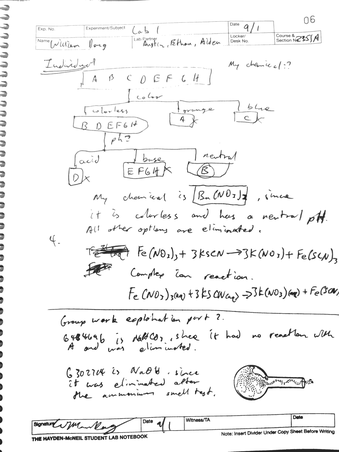 06
Exp. No.
Experiment/Subject Lab 1
Date 9/1
Name
Lab Partner Austin, Ethan, Aldea
Locker/Desk No.
Course & Section No.
Individual
My chemical: ?
A B C D E F G H
color
colorless orange blue
B D E F G H A x C x
ph?
acid base neutral
D x E F G H x B
My chemical is Ba(NO3)2, since
it is colorless and has a neutral pH.
All other options are eliminated.
4.
Fe(NO3)3 + 3KSCN → 3K(NO3) + Fe(SCN)3
Complex ion reaction.
Fe(NO3)3(aq) + 3KSCN(aq) → 3K(NO3)(aq) + Fe(SCN)
Group work explanation part 2.
is NaHCO3, since it had no reaction with
A and was eliminated.
is NaOH, since
it was eliminated after
the ammonium smell test.
Signature
Date 9/1
Witness/TA
Date
THE HAYDEN-McNEIL STUDENT LAB NOTEBOOK
Note: Insert Divider Under Copy Sheet Before Writing